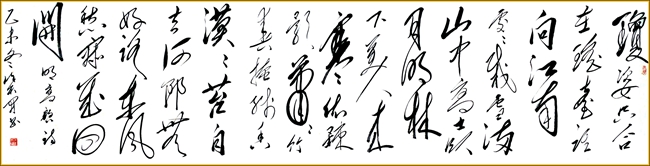 瓊姿只合
在瑤臺誰
向江南
處々栽雪滿
山中高士臥
月明林
下美人來
寒依疎
影蕭々竹
春掩殘香
漠々苔自
去何郎無
好詠東風
愁寂幾回
開
明高啟詩
乙未冬書